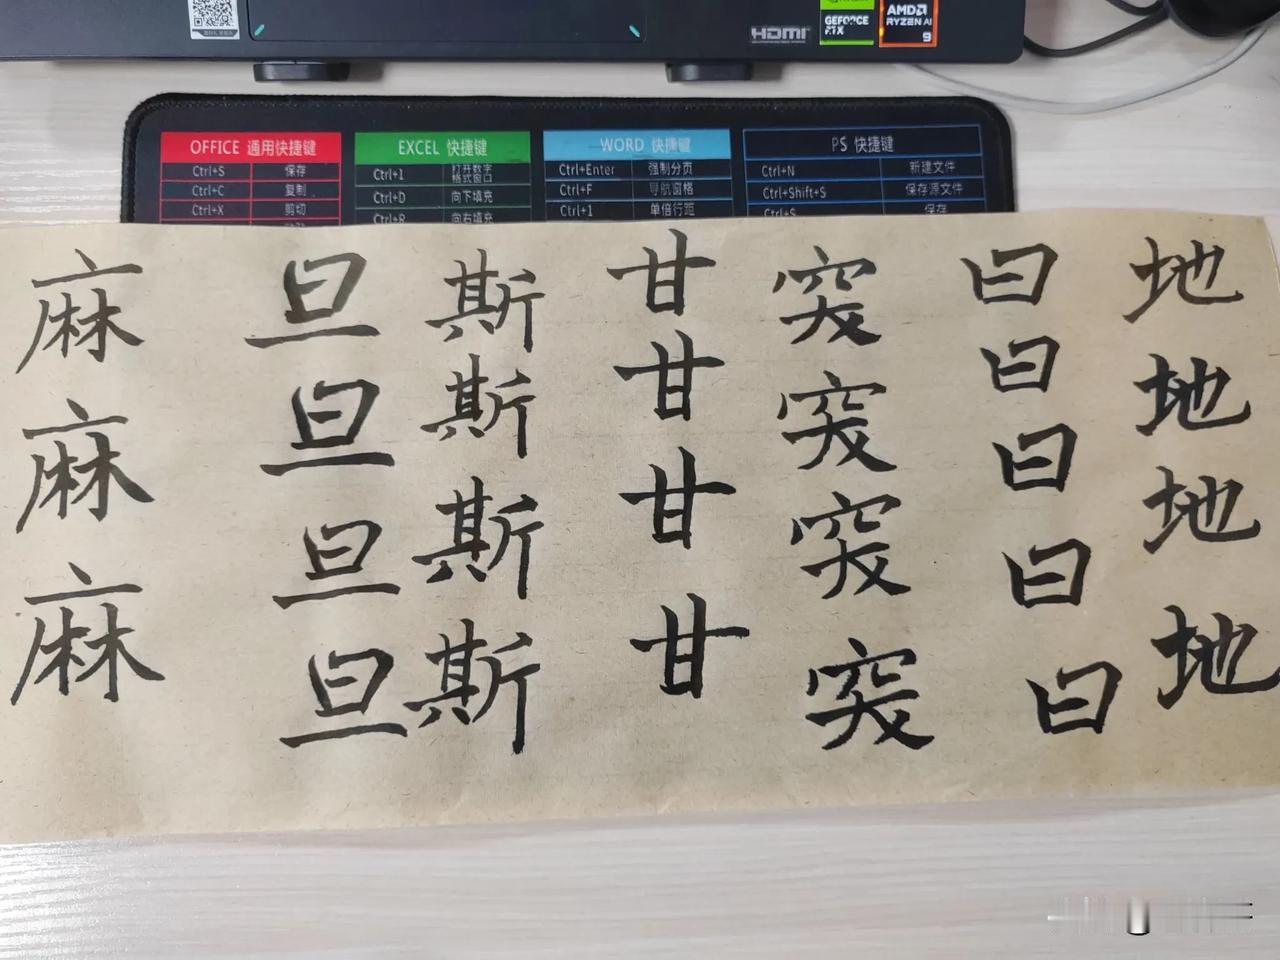 HDMI
GEFORCE
RTX
AMD
RYZEN AI
9
OFFICE 通用快捷键
Ctrl+S 保存
Ctrl+C 复制
Ctrl+X 剪切
EXCEL 快捷键
Ctrl+1 打开数字格式窗口
Ctrl+D 向下填充
Ctrl+R 向右填充
WORD 快捷键
Ctrl+Enter 强制分页
Ctrl+F 导航窗格
Ctrl+1 单倍行距
PS 快捷键
Ctrl+N 新建文件
Ctrl+Shift+S 保存源文件
Ctrl+S 保存
地地地地
曰曰曰曰曰
突突突突
甘甘甘甘
斯斯斯斯
旦旦旦旦
麻麻麻